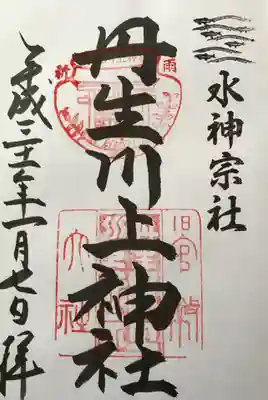 水神宗社
丹生川上神社
平成三十一年一月七日拝
雨
祈
旧官幣
大社